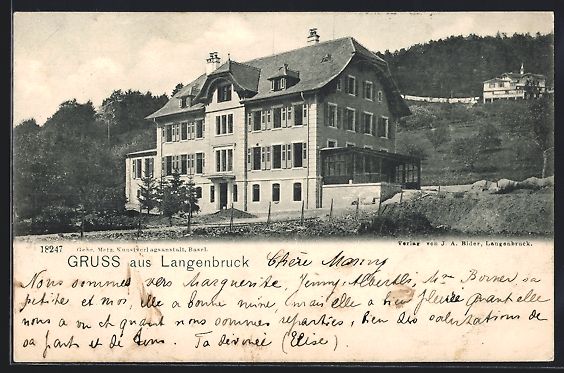 18247
Gebr. Metz, Kunstverlagsanstalt, Basel.
Verlag von J. A. Bider, Langenbruck.
GRUSS aus Langenbruck
Chère
Nous sommes vers Marguerite, Jenny, Mme Borner, sa
petite et moi, elle a bonne mine, mais elle a pleuré quant elle
nous a vu et quant nous sommes reparties, bien des salutations de
sa part et de Ta dévouée (Elise)